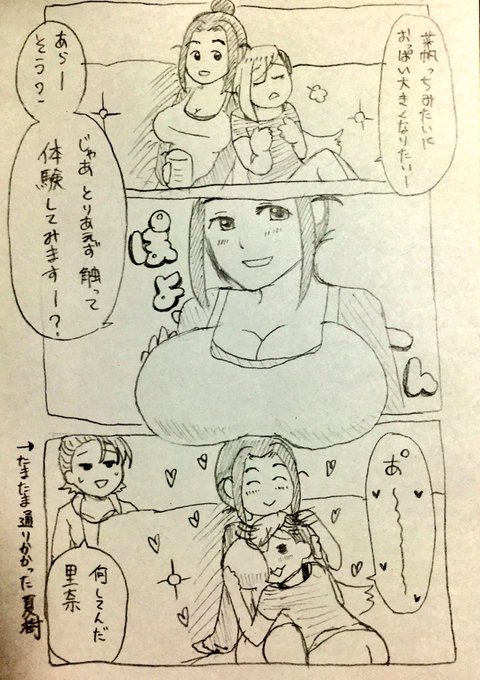 菜帆っちみたいに
おっぱい大きくなりたいー
あらー
そう？
じゃあ とりあえず 触って
体験してみますー？
ぽよん
お〜〜〜
何してんだ
里奈
→たまたま通りかかった夏樹